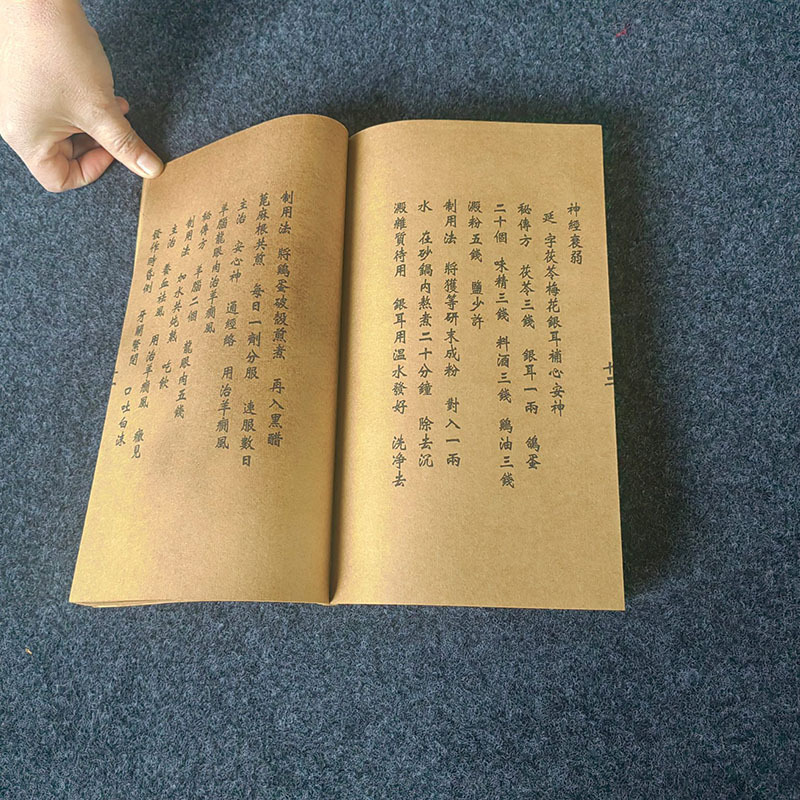 神經衰弱
延字茯苓梅花銀耳補心安神
秘傳方 茯苓三錢 銀耳一兩 鴿蛋
二十個 味精三錢 料酒三錢 鷄油三錢
澱粉五錢 鹽少許
制用法 將獲等研末成粉 對入一兩
水 在砂鍋内熬煮二十分鐘 除去沉
澱雜質待用 銀耳用温水發好 洗净去
十二
制用法 將鷄蛋破殼煎煮 再入黑醋
蓖麻根共煎 每日一劑分服 連服數日
主治 安心神 通經絡 用治羊癇風
羊腦龍眼肉治羊癇風
秘傳方 羊腦二個 龍眼肉五錢
制用法 加水共炖熟 吃飲
主治 養血祛風 用治羊癇風 癥見
發作時昏倒 牙關緊閉 口吐白沫